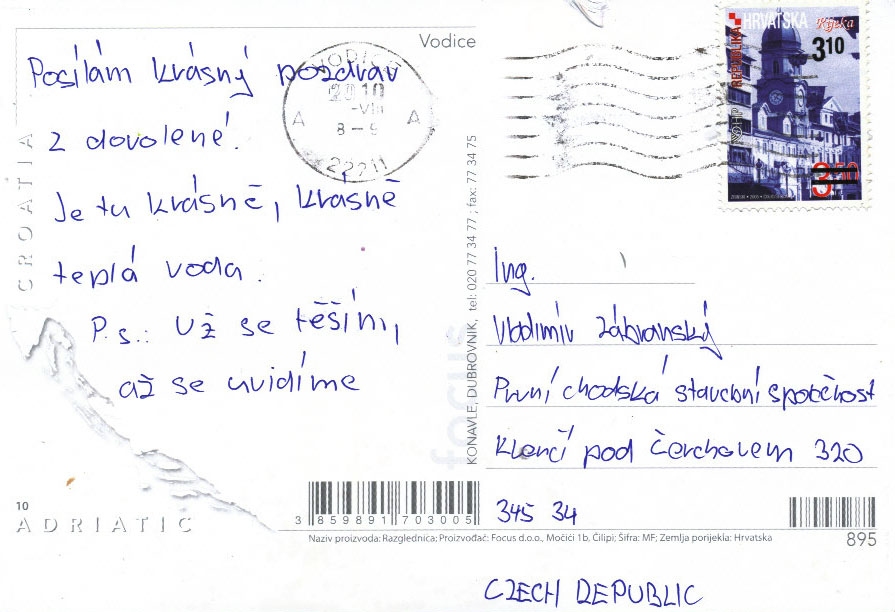 Vodice
Posílám krásný pozdrav
z dovolené.
Je tu krásně, krásně
teplá voda.
P.s.: Už se těším,
až se uvidíme
CROATIA
ADRIATIC
10
VODICE
2010
-VIII
8-9
A A
22211
REPUBLIKA HRVATSKA
Rijeka
3,10
3,50
focus
KONAVLE, DUBROVNIK, tel: 020 77 34 77 ; fax: 77 34 75
Ing.
Vladimír Zábranský
První chodská stavební společnost
Klenčí pod Čerchovem 320
345 34
CZECH REPUBLIC
3 859891 703005
Naziv proizvoda: Razglednica; Proizvođač: Focus d.o.o., Močići 1b, Čilipi; Šifra: MF; Zemlja porijekla: Hrvatska
895